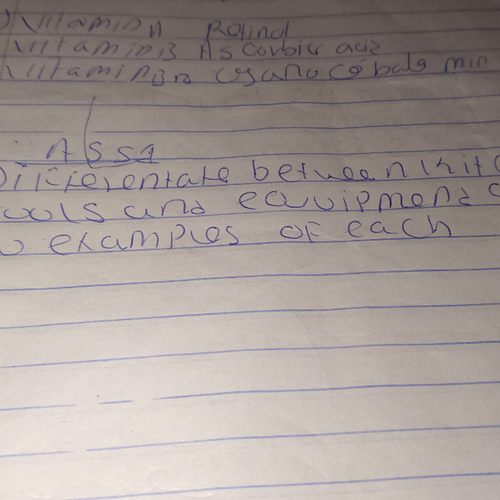 Vitamin A Retinol
Vitamin B Ascorbic acid
Vitamin B12 cyano cobala min
Ass1
Differentate between kit
ools and equipment
examples of each